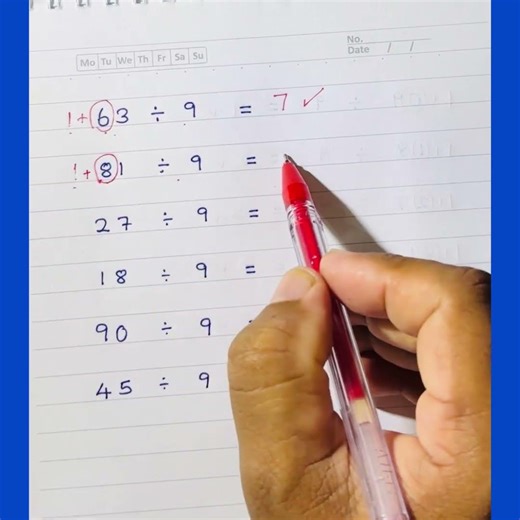 No.
Mo Tu We Th Fr Sa Su
Date / /
1+63 ÷ 9 = 7 ✓
1+81 ÷ 9 =
27 ÷ 9 =
18 ÷ 9 =
90 ÷ 9
45 ÷ 9